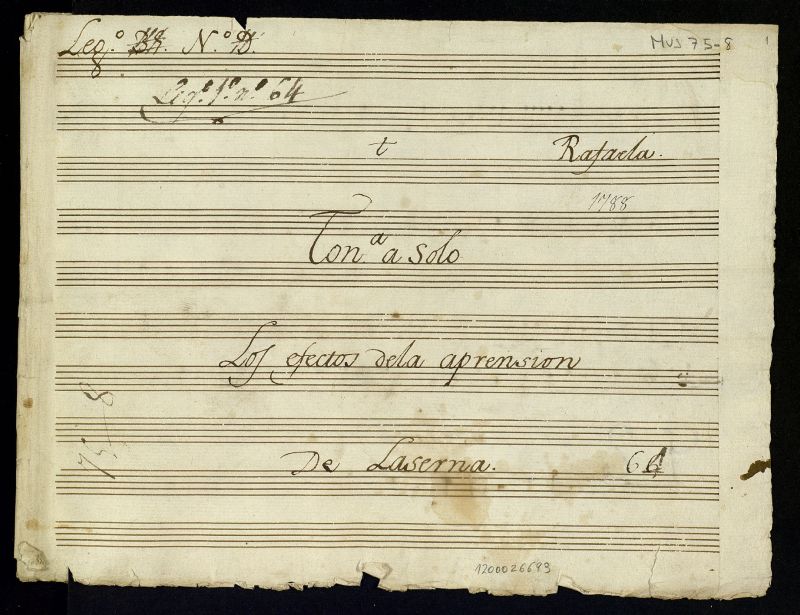 Leg.º Nº
Mus 75-8
1
Legº. 1º. nº. 64
t
Rafaela.
1788
Ton.ª a solo
Los efectos dela aprension
75-8
De Laserna.
64
1200026693